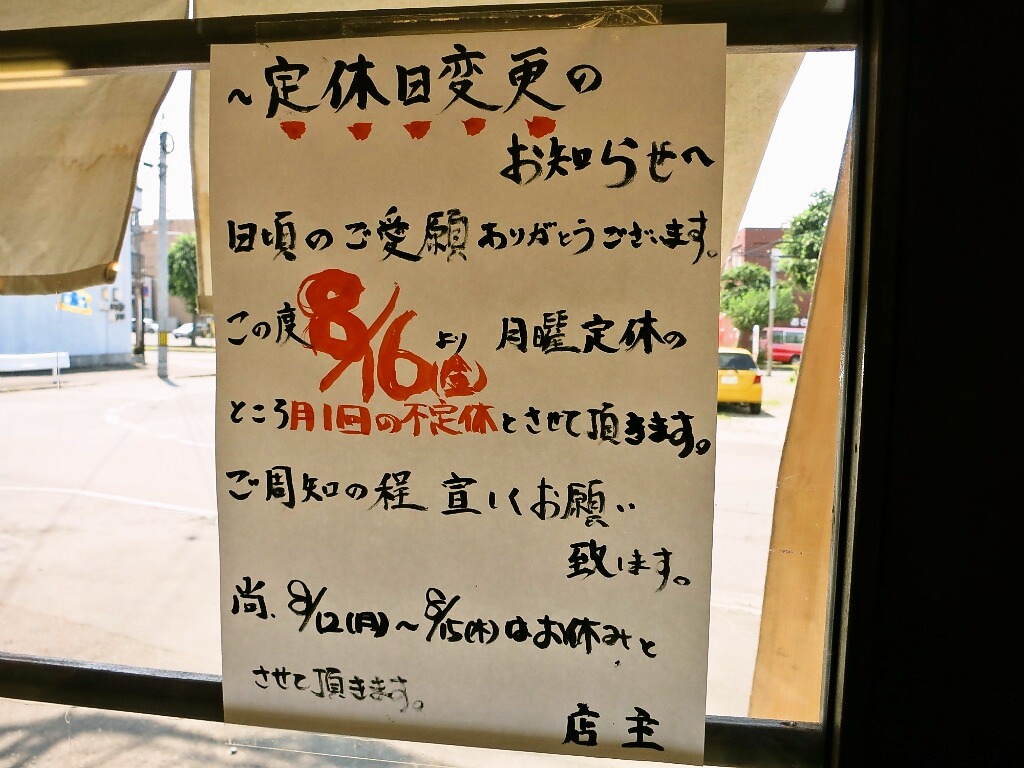 ~定休日変更の
お知らせへ
日頃のご愛願ありがとうございます。
この度8/16(金)より 月曜定休の
ところ月1回の不定休とさせて頂きます。
ご周知の程 宜しくお願い
致します。
尚、8/12(月)~8/15(木)はお休みと
させて頂きます。
店主